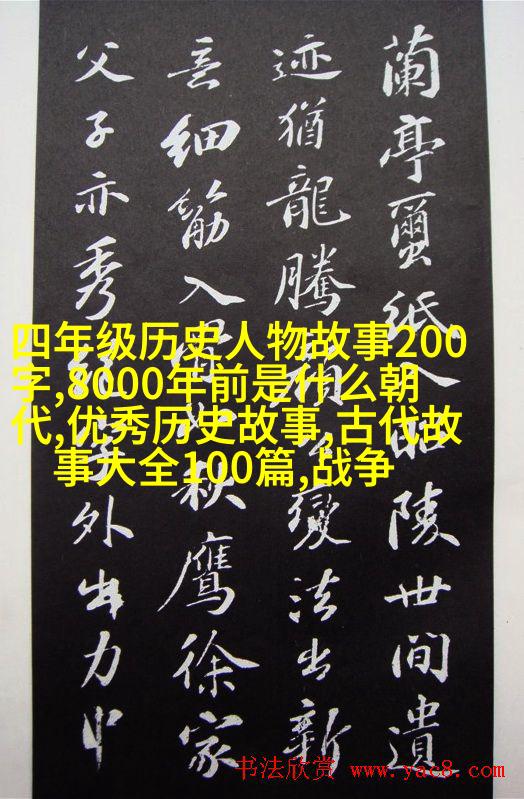 蘭亭繭紙入昭陵世間遺
迹猶龍騰變法出新
意細筋入秋鷹徐家
父子亦秀外出力中
四年级历史人物故事200
字,8000年前是什么朝
代,优秀历史故事,古代故
事大全100篇,战争
书法欣赏 www.yac8.com